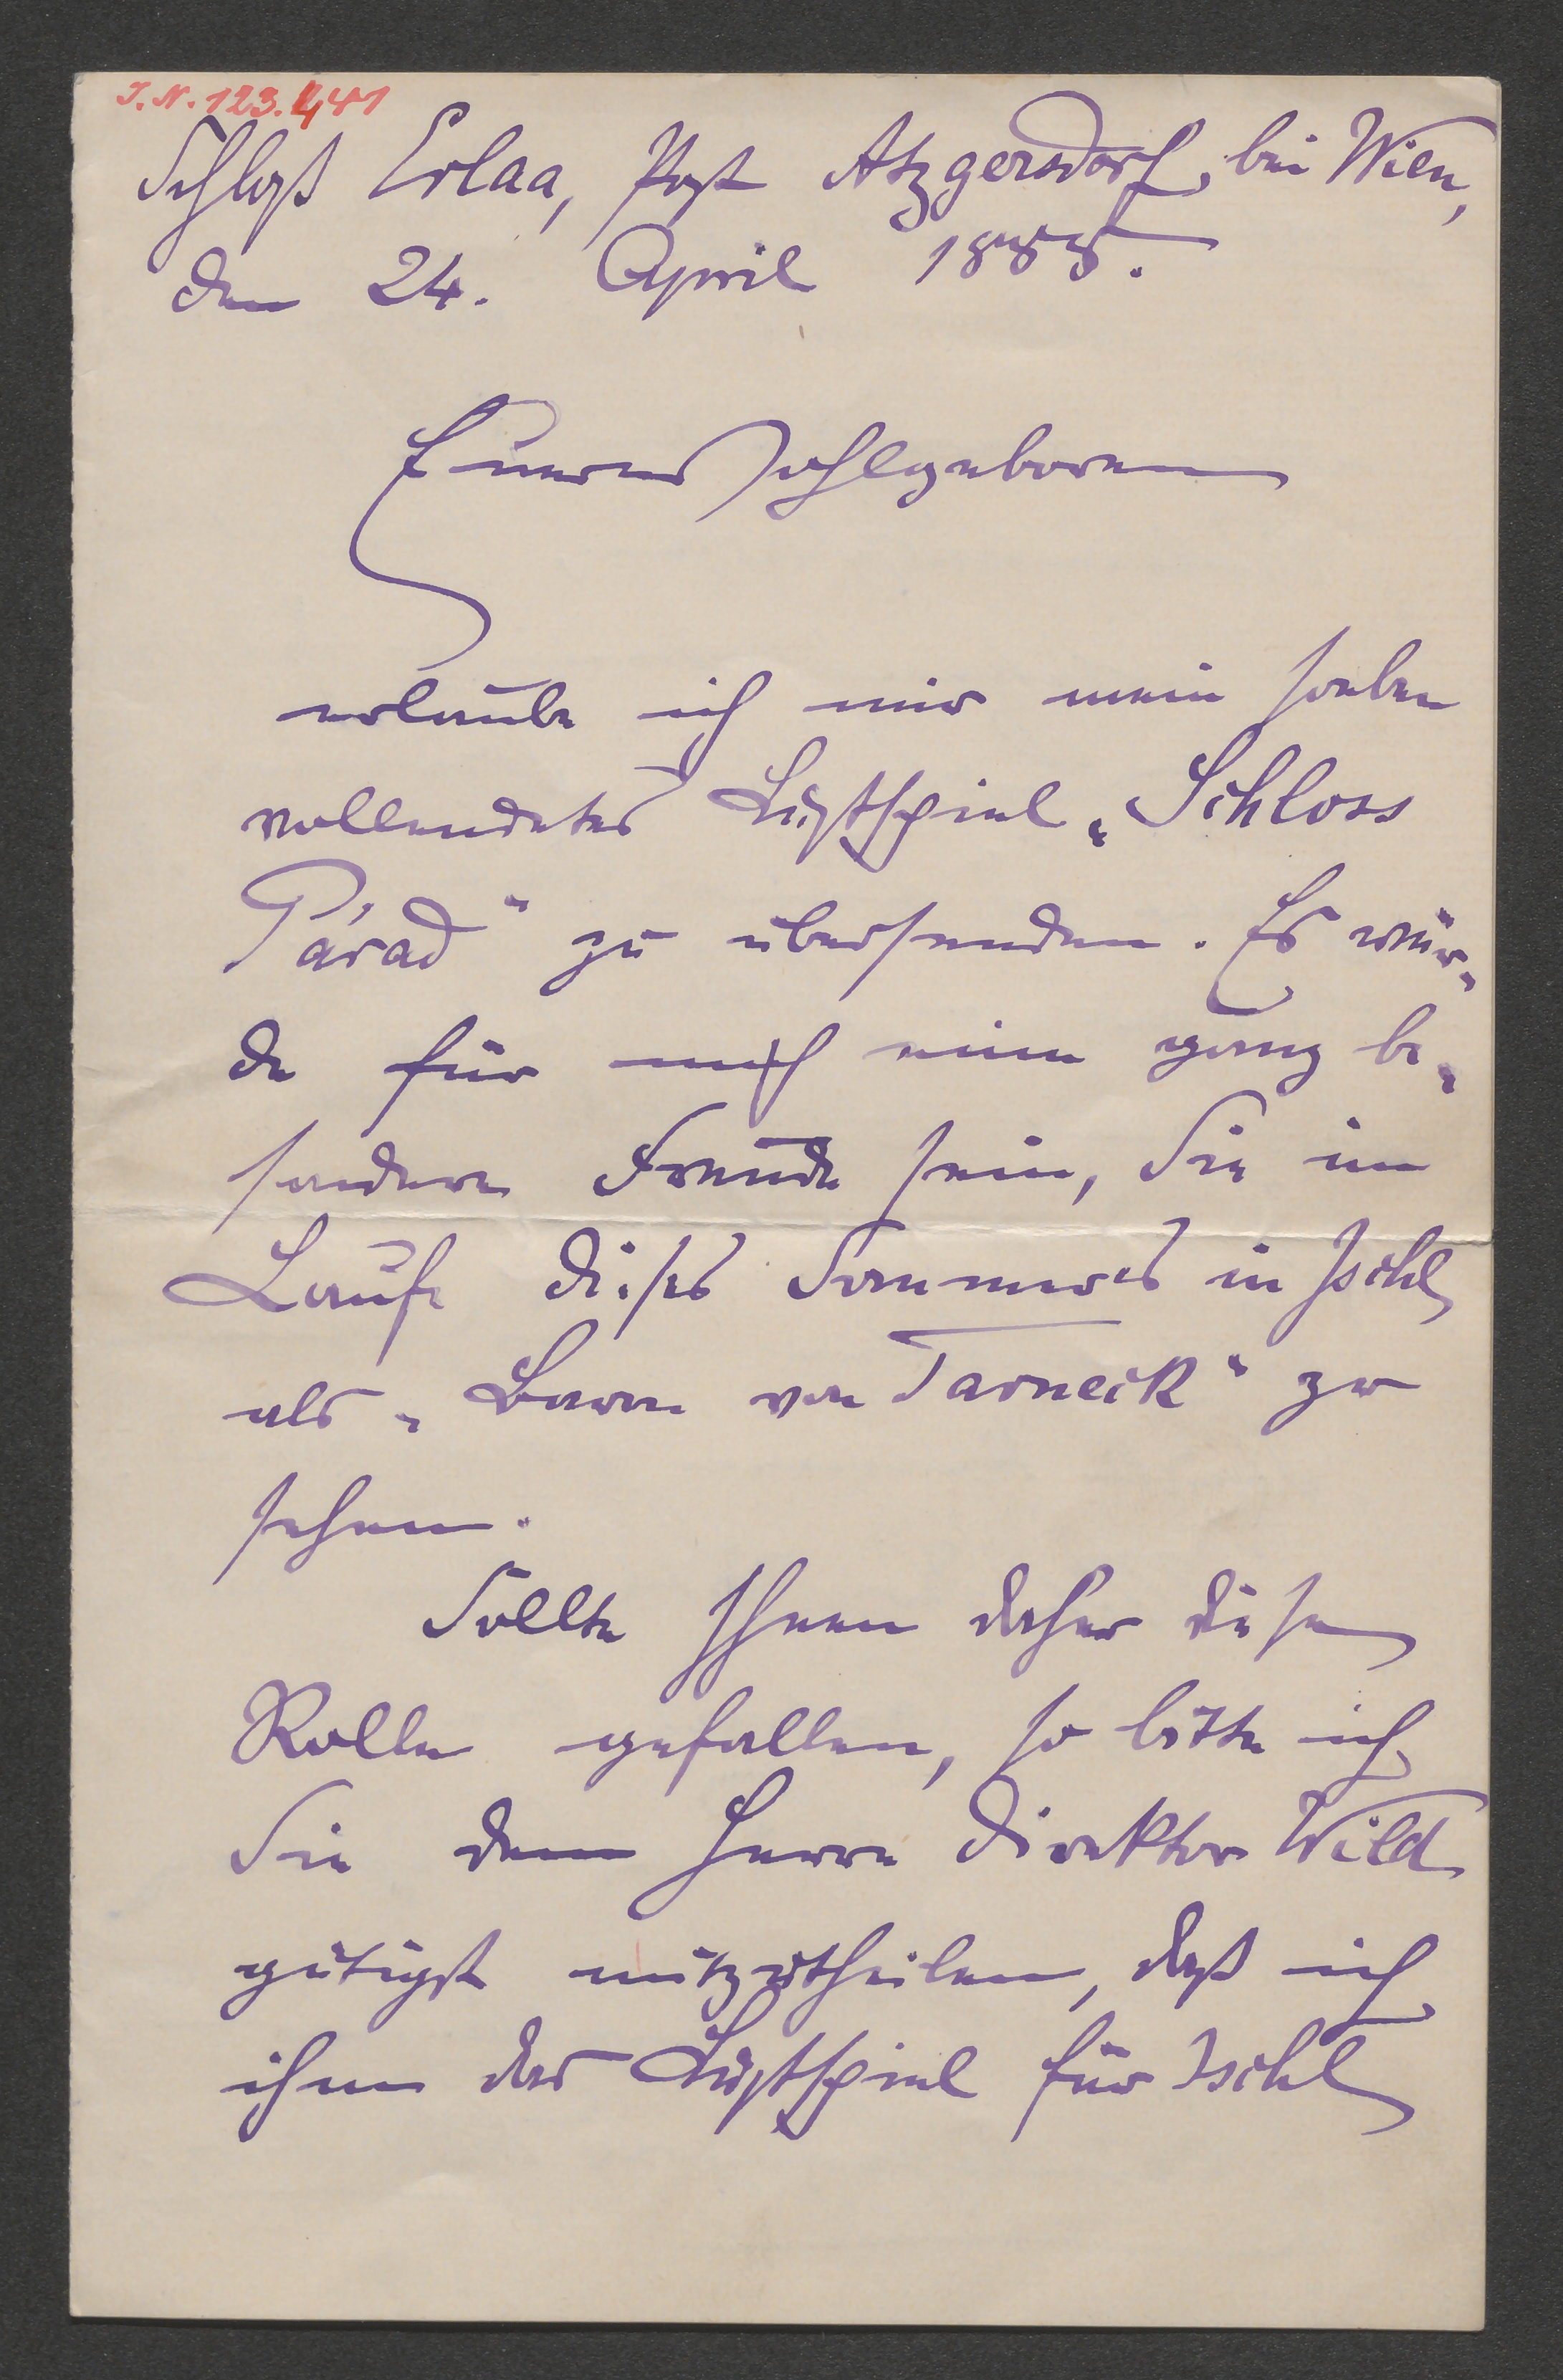 J. N. 123.441
Schloß Erlaa, Post Atzgersdorf, bei Wien,
den 24. April 1888.
Euer Wohlgeboren
erlaube ich mir mein soeben
vollendetes Lustspiel „Schloss
Párad“ zu übersenden. Es wür-
de für mich eine ganz be-
sondere Freude sein, Sie im
Laufe dieses Sommers in Ischl
als „Baron von Tarneck“ zu
sehen.
Sollte Ihnen daher diese
Rolle gefallen, so bitte ich
Sie dem Herrn Direktor Wild
gütigst mitzutheilen, daß ich
ihm das Lustspiel für Ischl